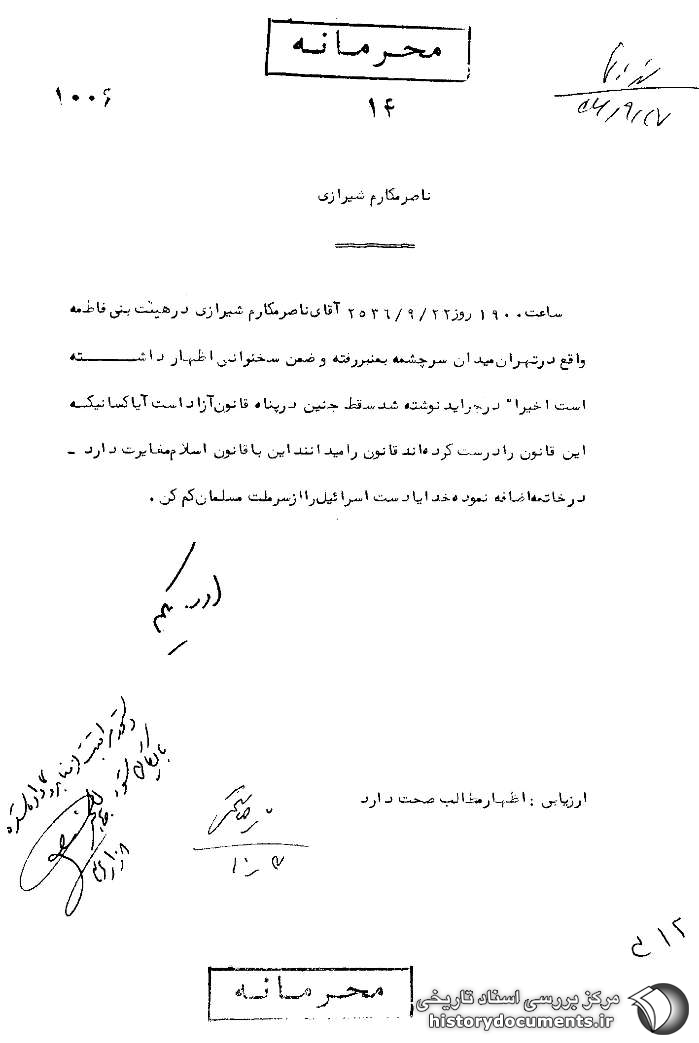 محرمانه
۱۰۰۶
۱۴
ناصر مکارم شیرازی
ساعت ۱۹۰۰ روز ۲۵۳۶/۹/۲۲ آقای ناصر مکارم شیرازی در هیئت بنی فاطمه
واقع در تهران میدان سرچشمه بمنبر رفته و ضمن سخنوانی اظهار داشته
است اخیرا" در جراید نوشته شد سقط جنین در پناه قانون آزاد است آیا کسانیکه
این قانون را درست کرده‌اند قانون را میدانند این با قانون اسلام مغایرت دارد ـ
در خاتمه اضافه نموده خدایا دست اسرائیل را از سر ملت مسلمان کم کن .
ارزیابی : اظهار مطالب صحت دارد
۱۲
محرمانه
مرکز بررسی اسناد تاریخی
historydocuments.ir